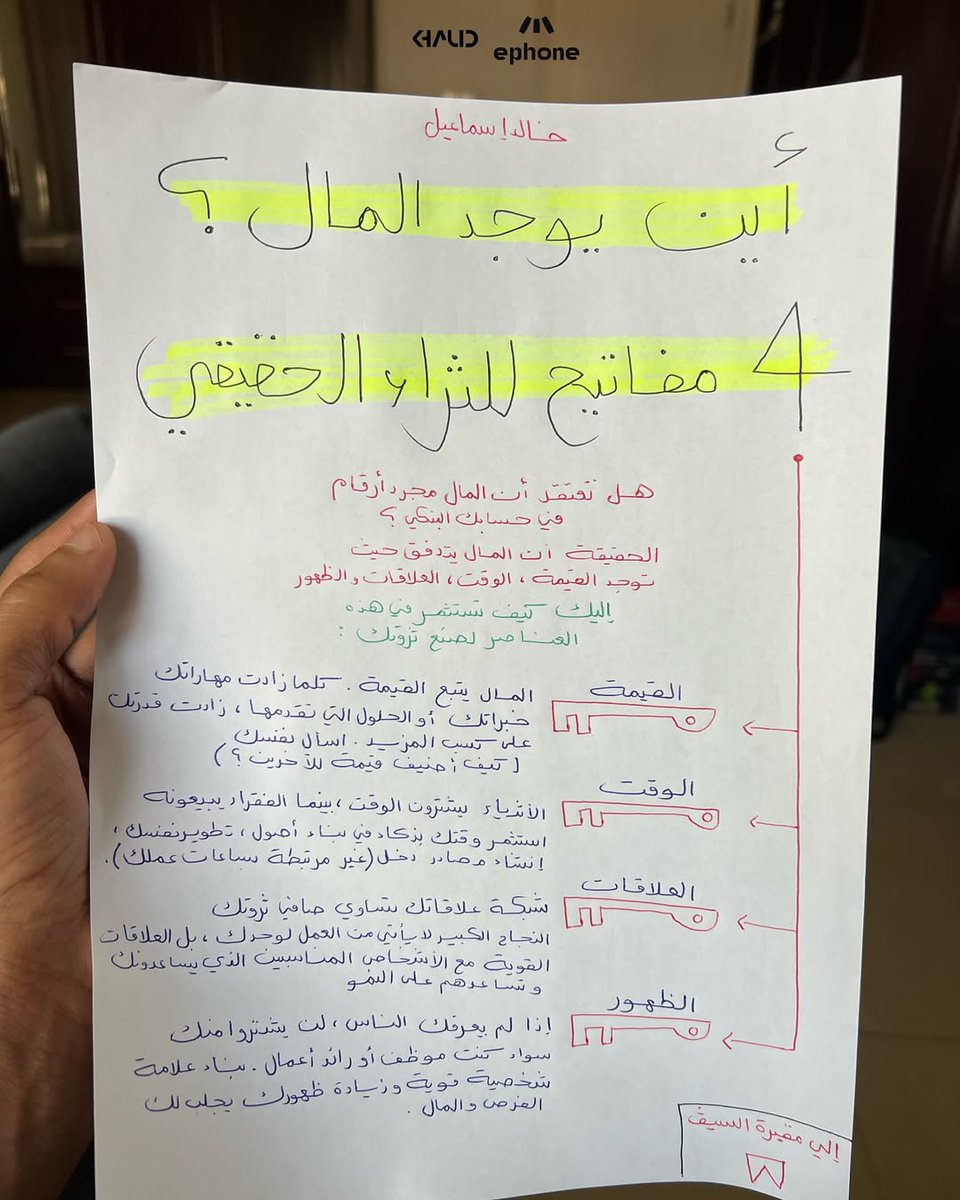 KHALID
ephone
خالد إسماعيل
أين يوجد المال ؟
4 مفاتيح للثراء الحقيقي
هل تعتقد أن المال مجرد أرقام
في حسابك البنكي ؟
الحقيقة أن المال يتدفق حيث
توجد القيمة ، الوقت ، العلاقات والظهور
إليك كيف تستثمر في هذه
العناصر لصنع ثروتك :
القيمة
المال يتبع القيمة . كلما زادت مهاراتك
خبراتك أو الحلول التي تقدمها ، زادت قدرتك
على كسب المزيد . اسأل نفسك
( كيف أضيف قيمة للآخرين ؟ )
الوقت
الأغنياء يشترون الوقت ، بينما الفقراء يبيعونه
استثمر وقتك بذكاء في بناء أصول ، تطوير نفسك ،
إنشاء مصادر دخل (غير مرتبطة بساعات عملك).
العلاقات
شبكة علاقاتك تساوي صافي ثروتك
النجاح الكبير لا يأتي من العمل لوحدك ، بل العلاقات
القوية مع الأشخاص المناسبين الذي يساعدونك
وتساعدهم على النمو
الظهور
إذا لم يعرفك الناس ، لن يشتروا منك
سواء كنت موظف أو رائد أعمال . بناء علامة
شخصية قوية وزيادة ظهورك يجلب لك
الفرص والمال .
إلي مقبرة السيف